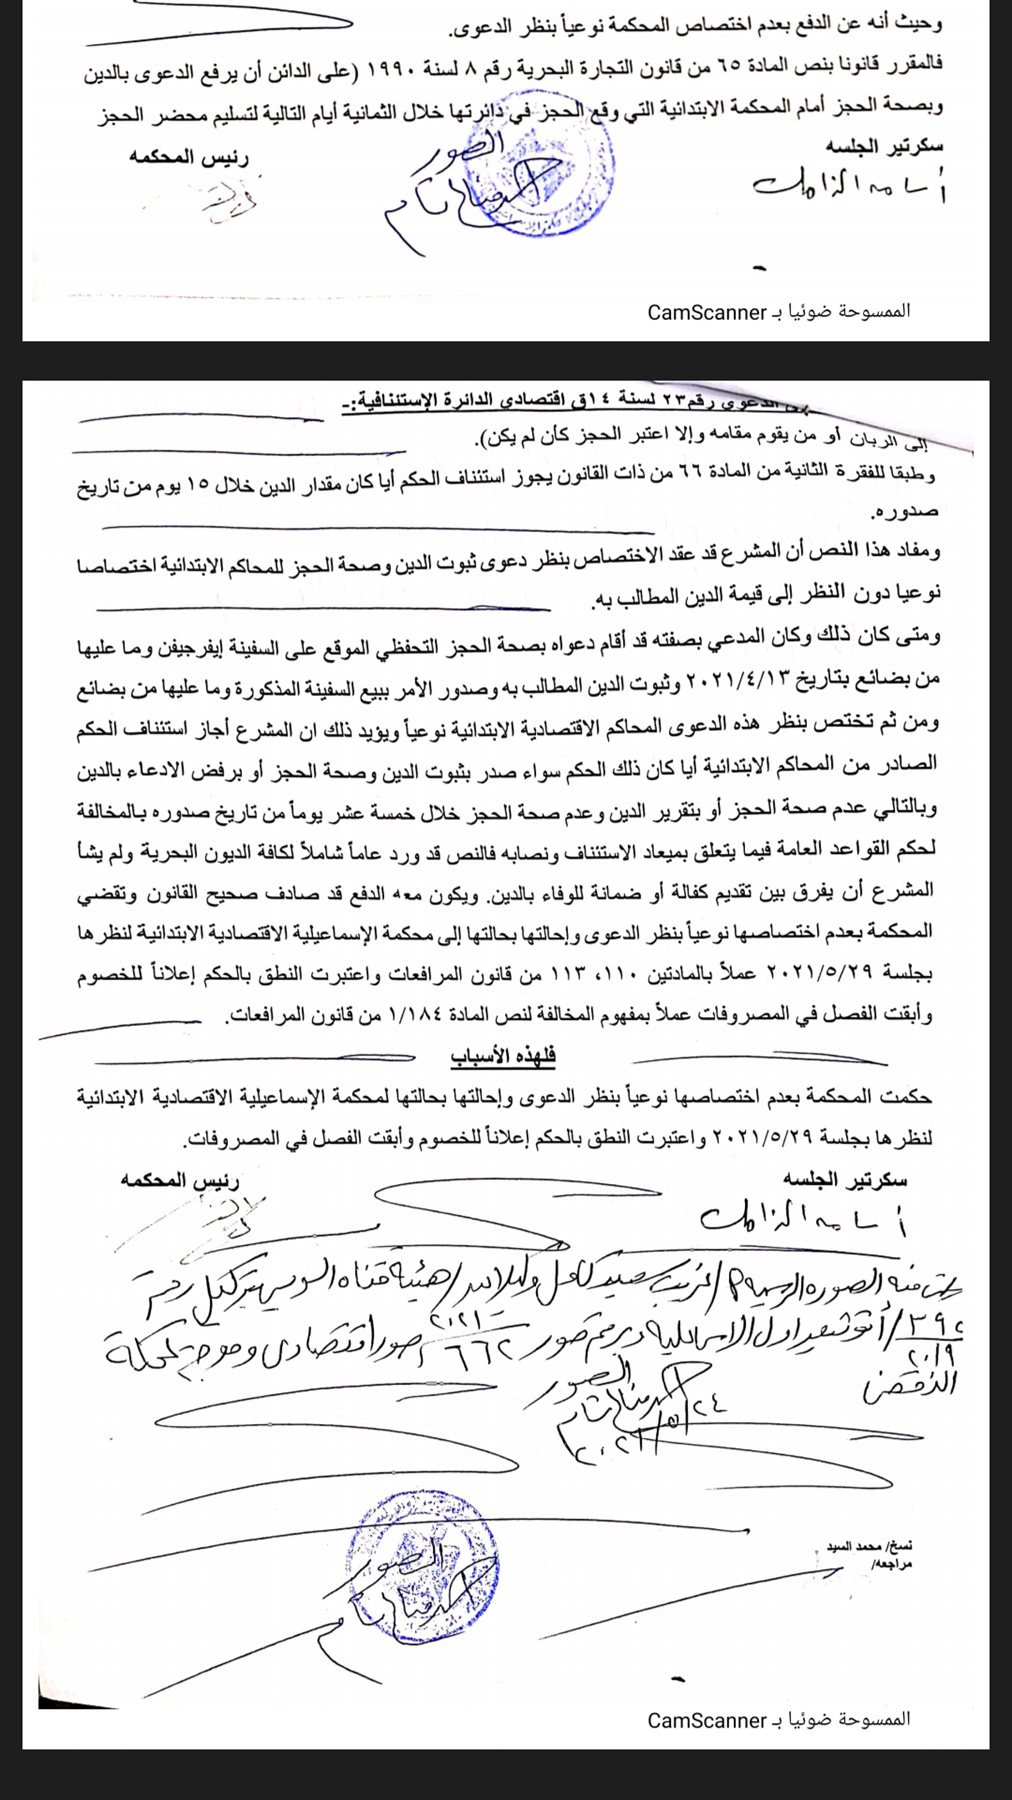 وحيث أنه عن الدفع بعدم اختصاص المحكمة نوعياً بنظر الدعوى.
فالمقرر قانونا بنص المادة ٦٥ من قانون التجارة البحرية رقم ٨ لسنة ١٩٩٠ (على الدائن أن يرفع الدعوى بالدين
وبصحة الحجز أمام المحكمة الابتدائية التي وقع الحجز في دائرتها خلال الثمانية أيام التالية لتسليم محضر الحجز
سكرتير الجلسه
رئيس المحكمه
أسامه الزاملى
الصور
الممسوحة ضوئيا بـ CamScanner
الدعوى رقم٢٣ لسنة ١٤ق اقتصادي الدائرة الإستئنافية:-
إلى الربان أو من يقوم مقامه وإلا اعتبر الحجز كأن لم يكن).
وطبقا للفقرة الثانية من المادة ٦٦ من ذات القانون يجوز استئناف الحكم أيا كان مقدار الدين خلال ١٥ يوم من تاريخ
صدوره.
ومفاد هذا النص أن المشرع قد عقد الاختصاص بنظر دعوى ثبوت الدين وصحة الحجز للمحاكم الابتدائية اختصاصا
نوعيا دون النظر إلى قيمة الدين المطالب به.
ومتى كان ذلك وكان المدعي بصفته قد أقام دعواه بصحة الحجز التحفظي الموقع على السفينة إيفرجيفن وما عليها
من بضائع بتاريخ ٢٠٢١/٤/١٣ وثبوت الدين المطالب به وصدور الأمر ببيع السفينة المذكورة وما عليها من بضائع
ومن ثم تختص بنظر هذه الدعوى المحاكم الاقتصادية الابتدائية نوعياً ويؤيد ذلك ان المشرع أجاز استئناف الحكم
الصادر من المحاكم الابتدائية أيا كان ذلك الحكم سواء صدر بثبوت الدين وصحة الحجز أو برفض الادعاء بالدين
وبالتالي عدم صحة الحجز أو بتقرير الدين وعدم صحة الحجز خلال خمسة عشر يوماً من تاريخ صدوره بالمخالفة
لحكم القواعد العامة فيما يتعلق بميعاد الاستئناف ونصابه فالنص قد ورد عاماً شاملاً لكافة الديون البحرية ولم يشأ
المشرع أن يفرق بين تقديم كفالة أو ضمانة للوفاء بالدين. ويكون معه الدفع قد صادف صحيح القانون وتقضي
المحكمة بعدم اختصاصها نوعياً بنظر الدعوى وإحالتها بحالتها إلى محكمة الإسماعيلية الاقتصادية الابتدائية لنظرها
بجلسة ٢٠٢١/٥/٢٩ عملاً بالمادتين ١١٠، ١١٣ من قانون المرافعات واعتبرت النطق بالحكم إعلاناً للخصوم
وأبقت الفصل في المصروفات عملاً بمفهوم المخالفة لنص المادة ١/١٨٤ من قانون المرافعات.
فلهذه الأسباب
حكمت المحكمة بعدم اختصاصها نوعياً بنظر الدعوى وإحالتها بحالتها لمحكمة الإسماعيلية الاقتصادية الابتدائية
لنظرها بجلسة ٢٠٢١/٥/٢٩ واعتبرت النطق بالحكم إعلاناً للخصوم وأبقت الفصل في المصروفات.
سكرتير الجلسه
رئيس المحكمه
أسامه الزاملى
منه الصوره الرسمية / سعيد كامل / هيئة قناة السويس بتوكيل رسمى
٣٩٠ / ٢٠١٩ / أ توثيق اول الاسماعيلية برقم صور ٦٦٢ / ٢٠٢١ صور اقتصادى لمحكمة
النقض
الصور
٢٠٢١/٥/٢٤
نسخ/ محمد السيد
مراجعه/
الصور
الممسوحة ضوئيا بـ CamScanner